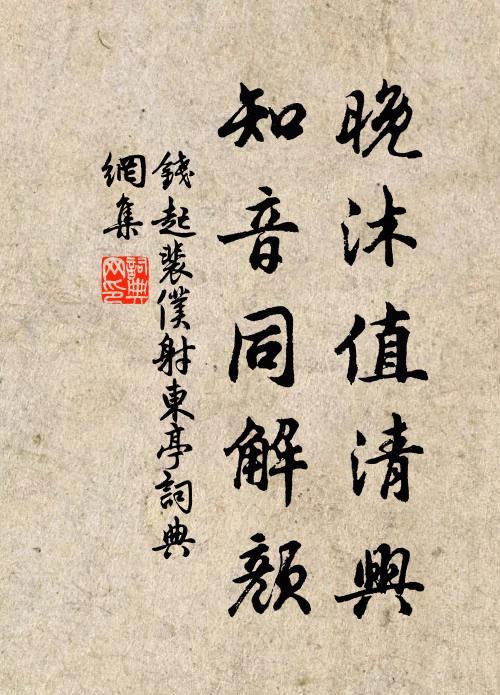 晚沐值清興
知音同解顏
錢起裴僕射東亭詞典
網集
詞典
网印